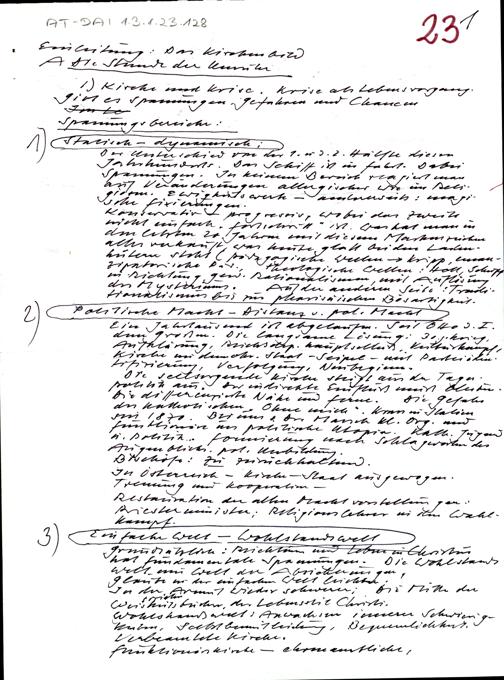 AT-DAI 13.1.23.128
23 1
Einleitung: Das Kirchenbild
A Die Stunde der Unruhe
1) Kirche und Krise. Krise als Lebensvorgang.
gibt es Spannungen Gefahren und Chancen
Spannungsbereiche:
1) Statisch – dynamisch:
Der Unterschied von der 1. u. 2. Hälfte dieses
Jahrhunderts. Das Schiff ist in Fahrt. Dabei
Spannungen. In keinem Bereich reagiert man
auf Veränderungen allergischer als im Reli-
giösen. Ewigkeitswerte – andererseits: magi-
sche Fixierungen.
Konservativ – progressiv, wobei das zweite
nicht einfach "fortschritt" ist. Was hat man in
den letzten 20 Jahren mit diesem Markenzeichen
alles verkauft, was heute glatt in den Laden-
hütern steht. Pädagogische Wellen –
Theologische Wellen: Holl. Schiff
in Richtung Rationalismus und Auflösung
des Mysteriums. Auf der anderen Seite: Tradi-
tionalismus bis zur pharisäischen Bösartigkeit.
2) Politische Macht – Distanz v. pol. Macht
Ein Jahrtausend ist abgelaufen. Seit Otto d. I.
dem Großen. Die langsame Lösung: 30j. Krieg.
Aufklärung, Kulturkampf
Kirche und demokr. Staat – Seipel – und Parteiiden-
tifizierung. Verfolgung, Neubeginn.
Die seelsorgende Kirche steigt aus der Tages-
politik aus. Der indirekte Einfluß muß bleiben.
Die differenzierte Nähe und Ferne. Die Gefahr
des katholischen "Ohne mich". Krass in Italien
seit 1870. Bei uns: Der Marsch kl. Org. und
Funktionäre ins politische Utopia. Kath. Jugend
u. Politik. Formierung nach Schlagworten des
Augenblicks. pol. Unbildung.
Bischöfe: zu zurückhaltend.
In Österreich – Kirche – Staat ausgewogen.
Trennung und Kooperation –
Restauration der alten Machtvorstellungen:
Priesterminister, Religionslehrer in den Wahl-
kampf.
3) Einfache Welt – Wohlstandswelt
Grundsätzlich: Reichtum und Leben in Christus
hat fundamentale Spannungen. Die Wohlstands
welt
Glaube in der einfachen Welt leichter.
In der Armut wieder schwerer; Die Mitte der
Weisheitsbücher, der Lebensstil Christi.
Wohlstandswelt: Anwachsen innerer Schwierig-
keiten, Selbstbemitleidung, Bequemlichkeit.
Verbeamtete Kirche.
Funktionärskirche – ehrenamtliche,